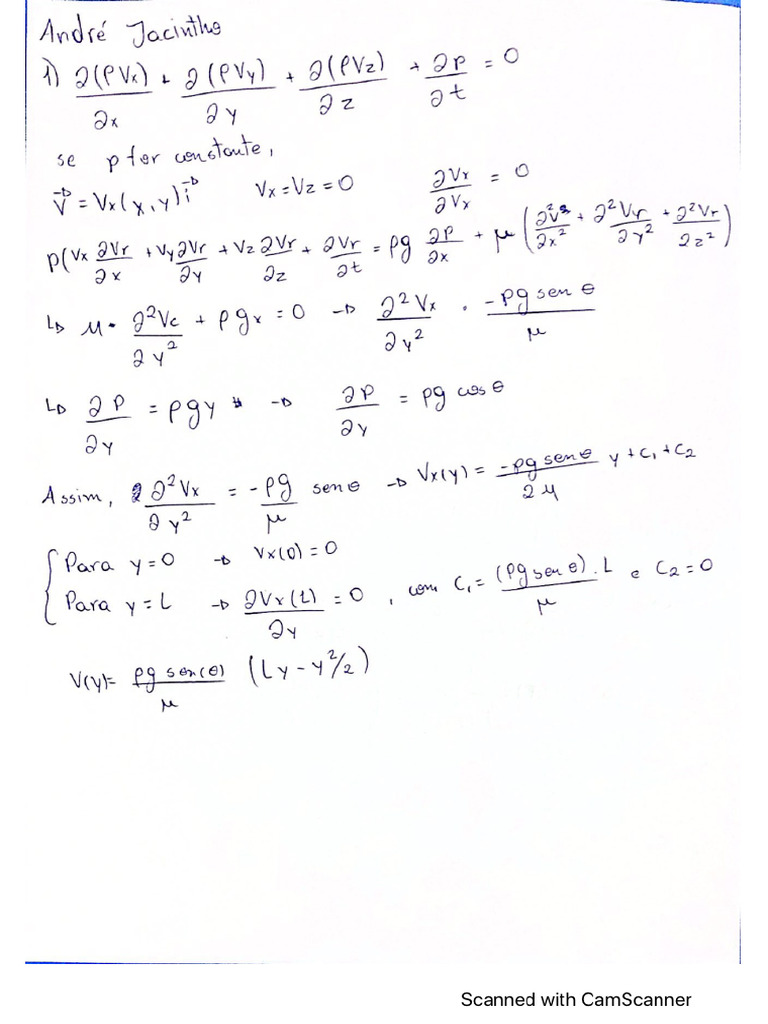 André Jacintho
1) ∂(ρVx)/∂x + ∂(ρVy)/∂y + ∂(ρVz)/∂z + ∂ρ/∂t = 0
se ρ for constante,
V⃗ = Vx(x,y)i⃗ Vx=Vz=0 ∂Vx/∂Vx = 0
ρ(Vx ∂Vr/∂x + Vy ∂Vr/∂y + Vz ∂Vr/∂z + ∂Vr/∂t = ρg ∂P/∂x + μ(∂²V²/∂x² + ∂²Vr/∂y² + ∂²Vr/∂z²)
↳ μ · ∂²Vc/∂y² + ρgx = 0 → ∂²Vx/∂y² · -ρg sen θ/μ
↳ ∂P/∂y = ρgy → ∂P/∂y = ρg cos θ
Assim, ∂²Vx/∂y² = -ρg/μ sen θ → Vx(y) = -ρg sen θ/2μ y + C₁ + C₂
{ Para y=0 → Vx(0) = 0
Para y=L → ∂Vx(L)/∂y = 0, com C₁ = (ρg sen θ)/μ . L e C₂=0
V(y)= ρg sen(θ)/μ (Ly - y²/2)
Scanned with CamScanner